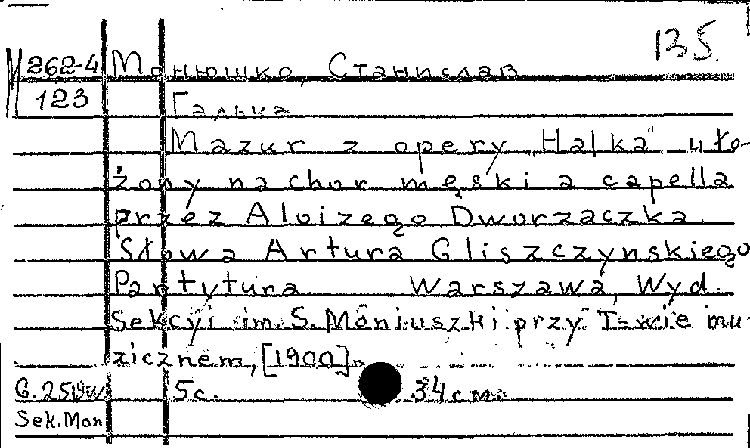 135
М 262-4 Монюшко, Станислав
123 Галька
Mazur z opery „Halka" uło-
żony na chor męski a capella
przez Aloizego Dworzaczka
Słowa Artura Gliszczynskiego
Partytura Warszawa, Wyd.
Sekcyi im. S. Moniuszki przy T-wie mu-
zicznem, [1900].
5 с. 34 см.
Sek. Mon